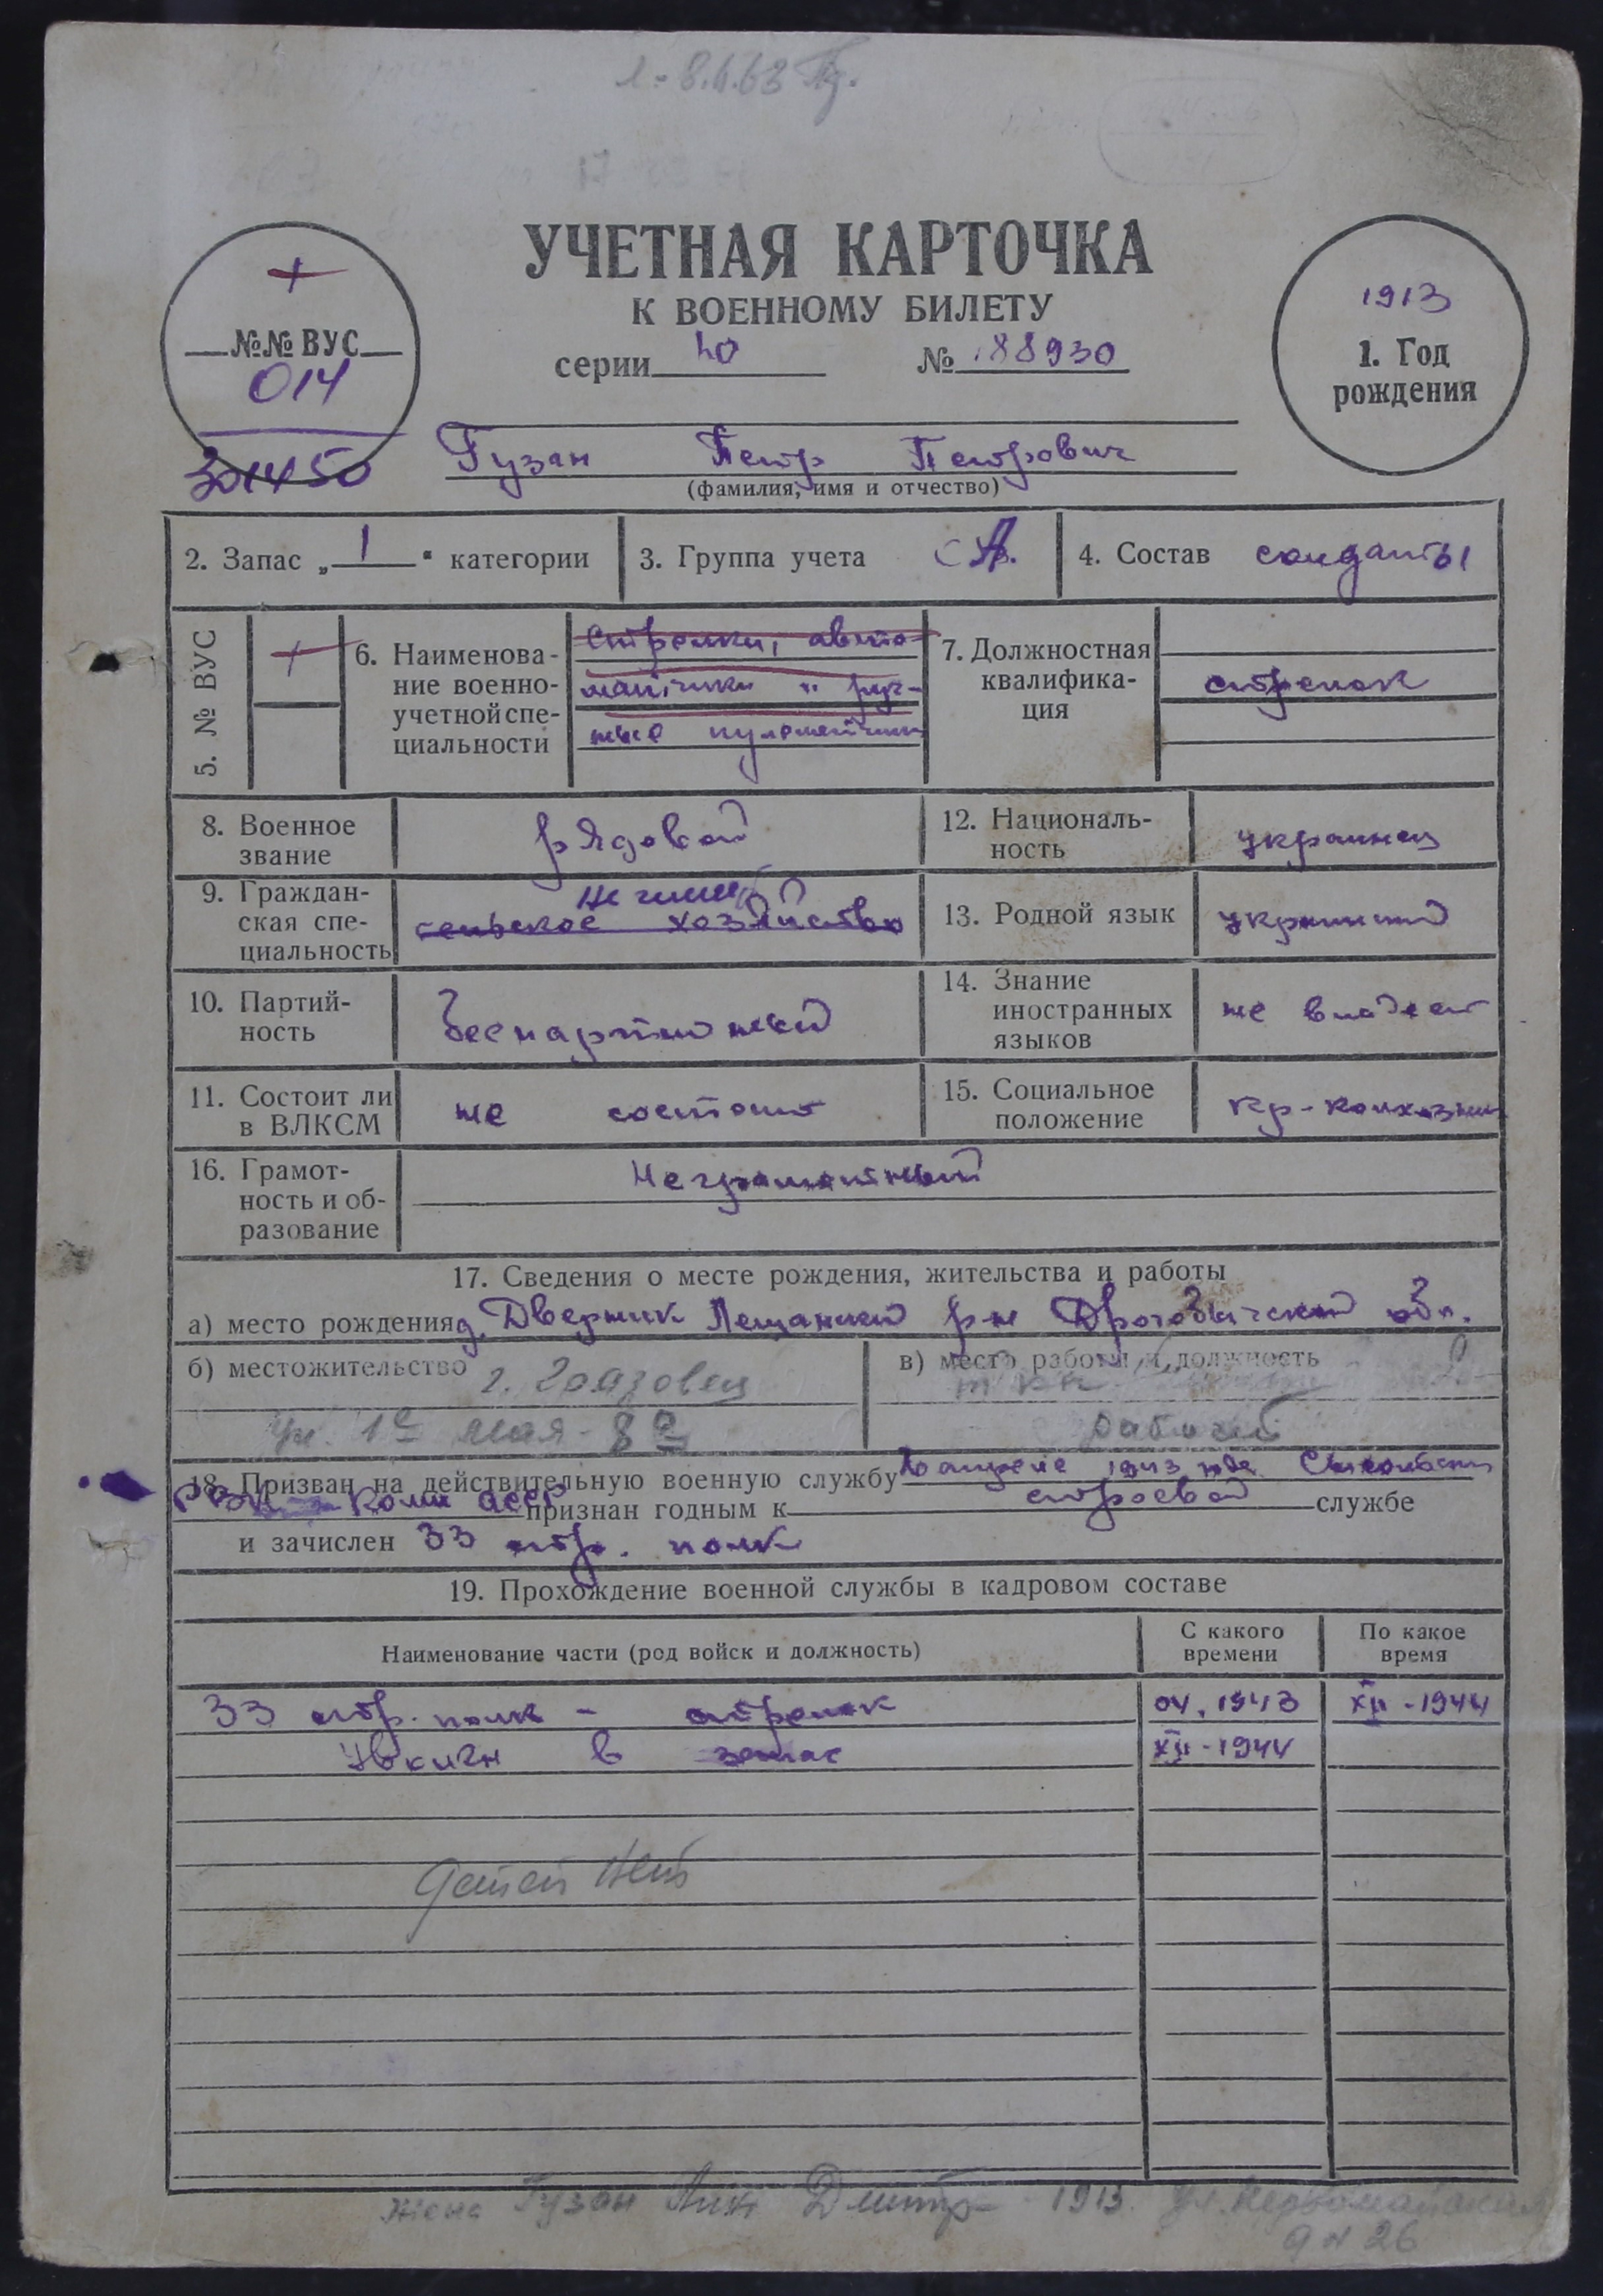 УЧЕТНАЯ КАРТОЧКА
К ВОЕННОМУ БИЛЕТУ
серии № 188930
№№ ВУС
014
301450
1913
1. Год
рождения
Гузан Петр Петрович
(фамилия, имя и отчество)
2. Запас „ 1 “ категории
3. Группа учета СА.
4. Состав солдаты
5. № ВУС
6. Наименова-
ние военно-
учетной спе-
циальности
Стрелки, авто-
матчики и руч-
ные пулеметчики
7. Должностная
квалифика-
ция
стрелок
8. Военное
звание
рядовой
12. Националь-
ность
украинец
9. Граждан-
ская спе-
циальность
не имеет
сельское хозяйство
13. Родной язык украинский
10. Партий-
ность
беспартийный
14. Знание
иностранных
языков
не владеет
11. Состоит ли
в ВЛКСМ
не состоит
15. Социальное
положение
кр-колхозник
16. Грамот-
ность и об-
разование
Неграмотный
17. Сведения о месте рождения, жительства и работы
а) место рождения д. Дверник Лещанский р-н Дрогобычский обл.
б) местожительство г. Грязовец
ул. 1е мая - 8а
в) место работы и должность
рабочий
18. Призван на действительную военную службу В апреле 1943 года
РВК Коми АССР признан годным к строевой службе
и зачислен 33 стр. полк
19. Прохождение военной службы в кадровом составе
Наименование части (род войск и должность)
С какого
времени
По какое
время
33 стр. полк - стрелок 04.1943 XII-1944
Уволен в запас XII-1944
Детей нет
жена Гузан Дмитр 1913. ул. Первомайская
26